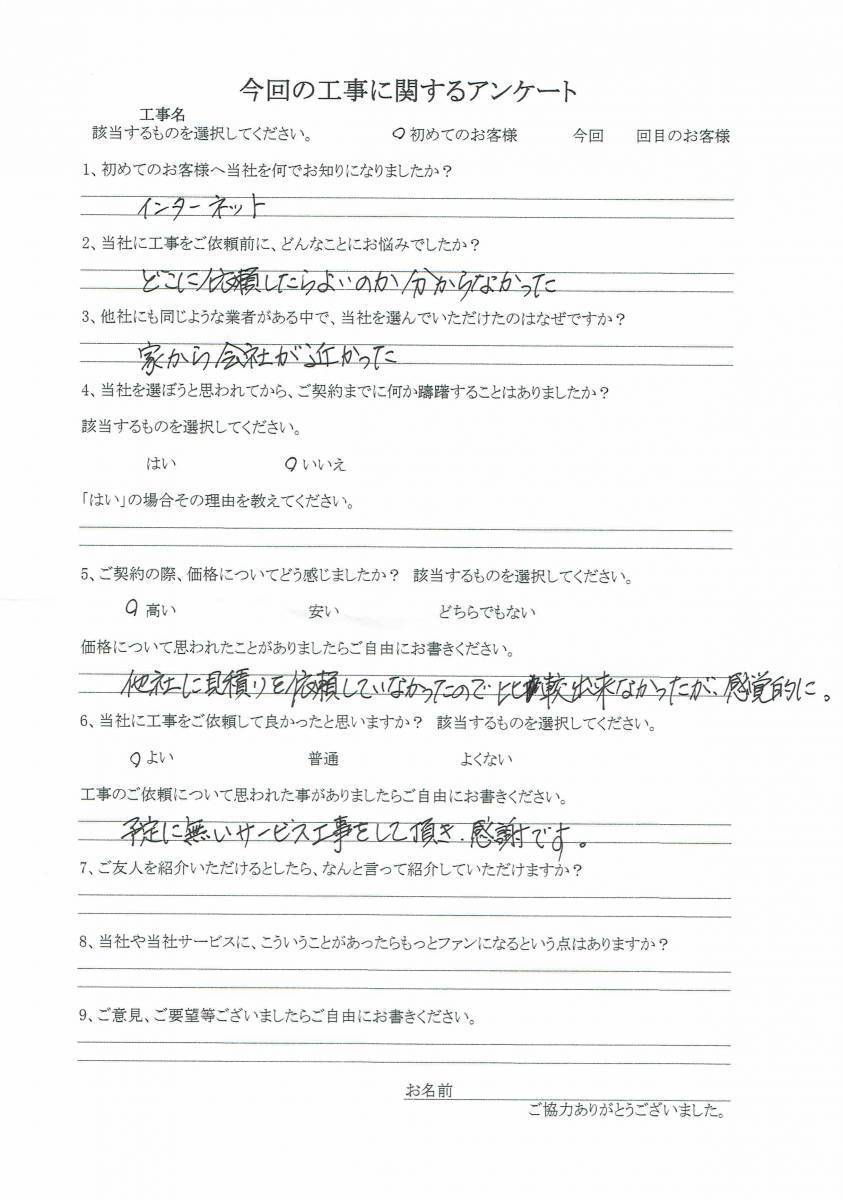 今回の工事に関するアンケート
工事名
該当するものを選択してください。 ○初めてのお客様 今回 回目のお客様
1、初めてのお客様へ当社を何でお知りになりましたか？
インターネット
2、当社に工事をご依頼前に、どんなことにお悩みでしたか？
どこに依頼したらよいのか分からなかった
3、他社にも同じような業者がある中で、当社を選んでいただけたのはなぜですか？
家から会社が近かった
4、当社を選ぼうと思われてから、ご契約までに何か躊躇することはありましたか？
該当するものを選択してください。
はい ○いいえ
「はい」の場合その理由を教えてください。
5、ご契約の際、価格についてどう感じましたか？ 該当するものを選択してください。
○高い 安い どちらでもない
価格について思われたことがありましたらご自由にお書きください。
他社に見積りを依頼していなかったので比較出来なかったが、感覚的に。
6、当社に工事をご依頼して良かったと思いますか？ 該当するものを選択してください。
○よい 普通 よくない
工事のご依頼について思われた事がありましたらご自由にお書きください。
予定に無いサービス工事をして頂き、感謝です。
7、ご友人を紹介いただけるとしたら、なんと言って紹介していただけますか？
8、当社や当社サービスに、こういうことがあったらもっとファンになるという点はありますか？
9、ご意見、ご要望等ございましたらご自由にお書きください。
お名前
ご協力ありがとうございました。